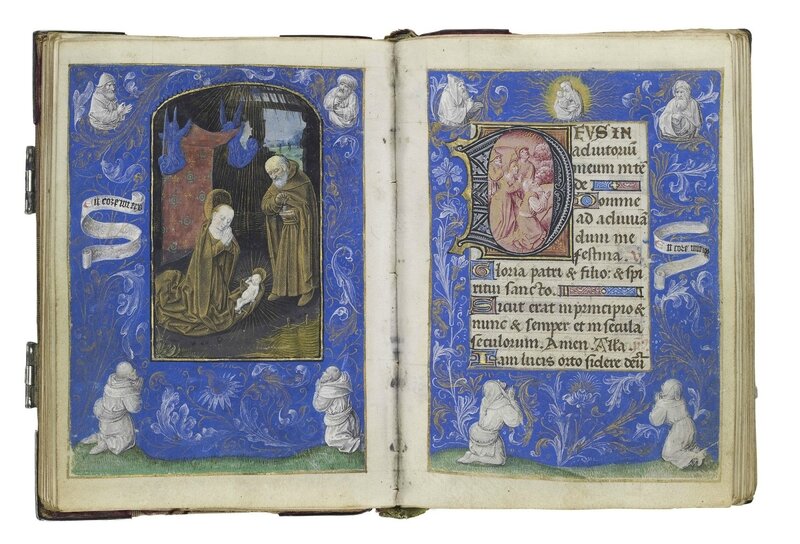 DEVS IN
adiutoriū
meum intē
de
Domine
ad adiuvā
dum me
festina.
Gloria patri & filio: & spi
ritui sancto.
Sicut erat in principio &
nunc & semper et in secula
seculorum. Amen. Alla.
Iam lucis orto sidere deū